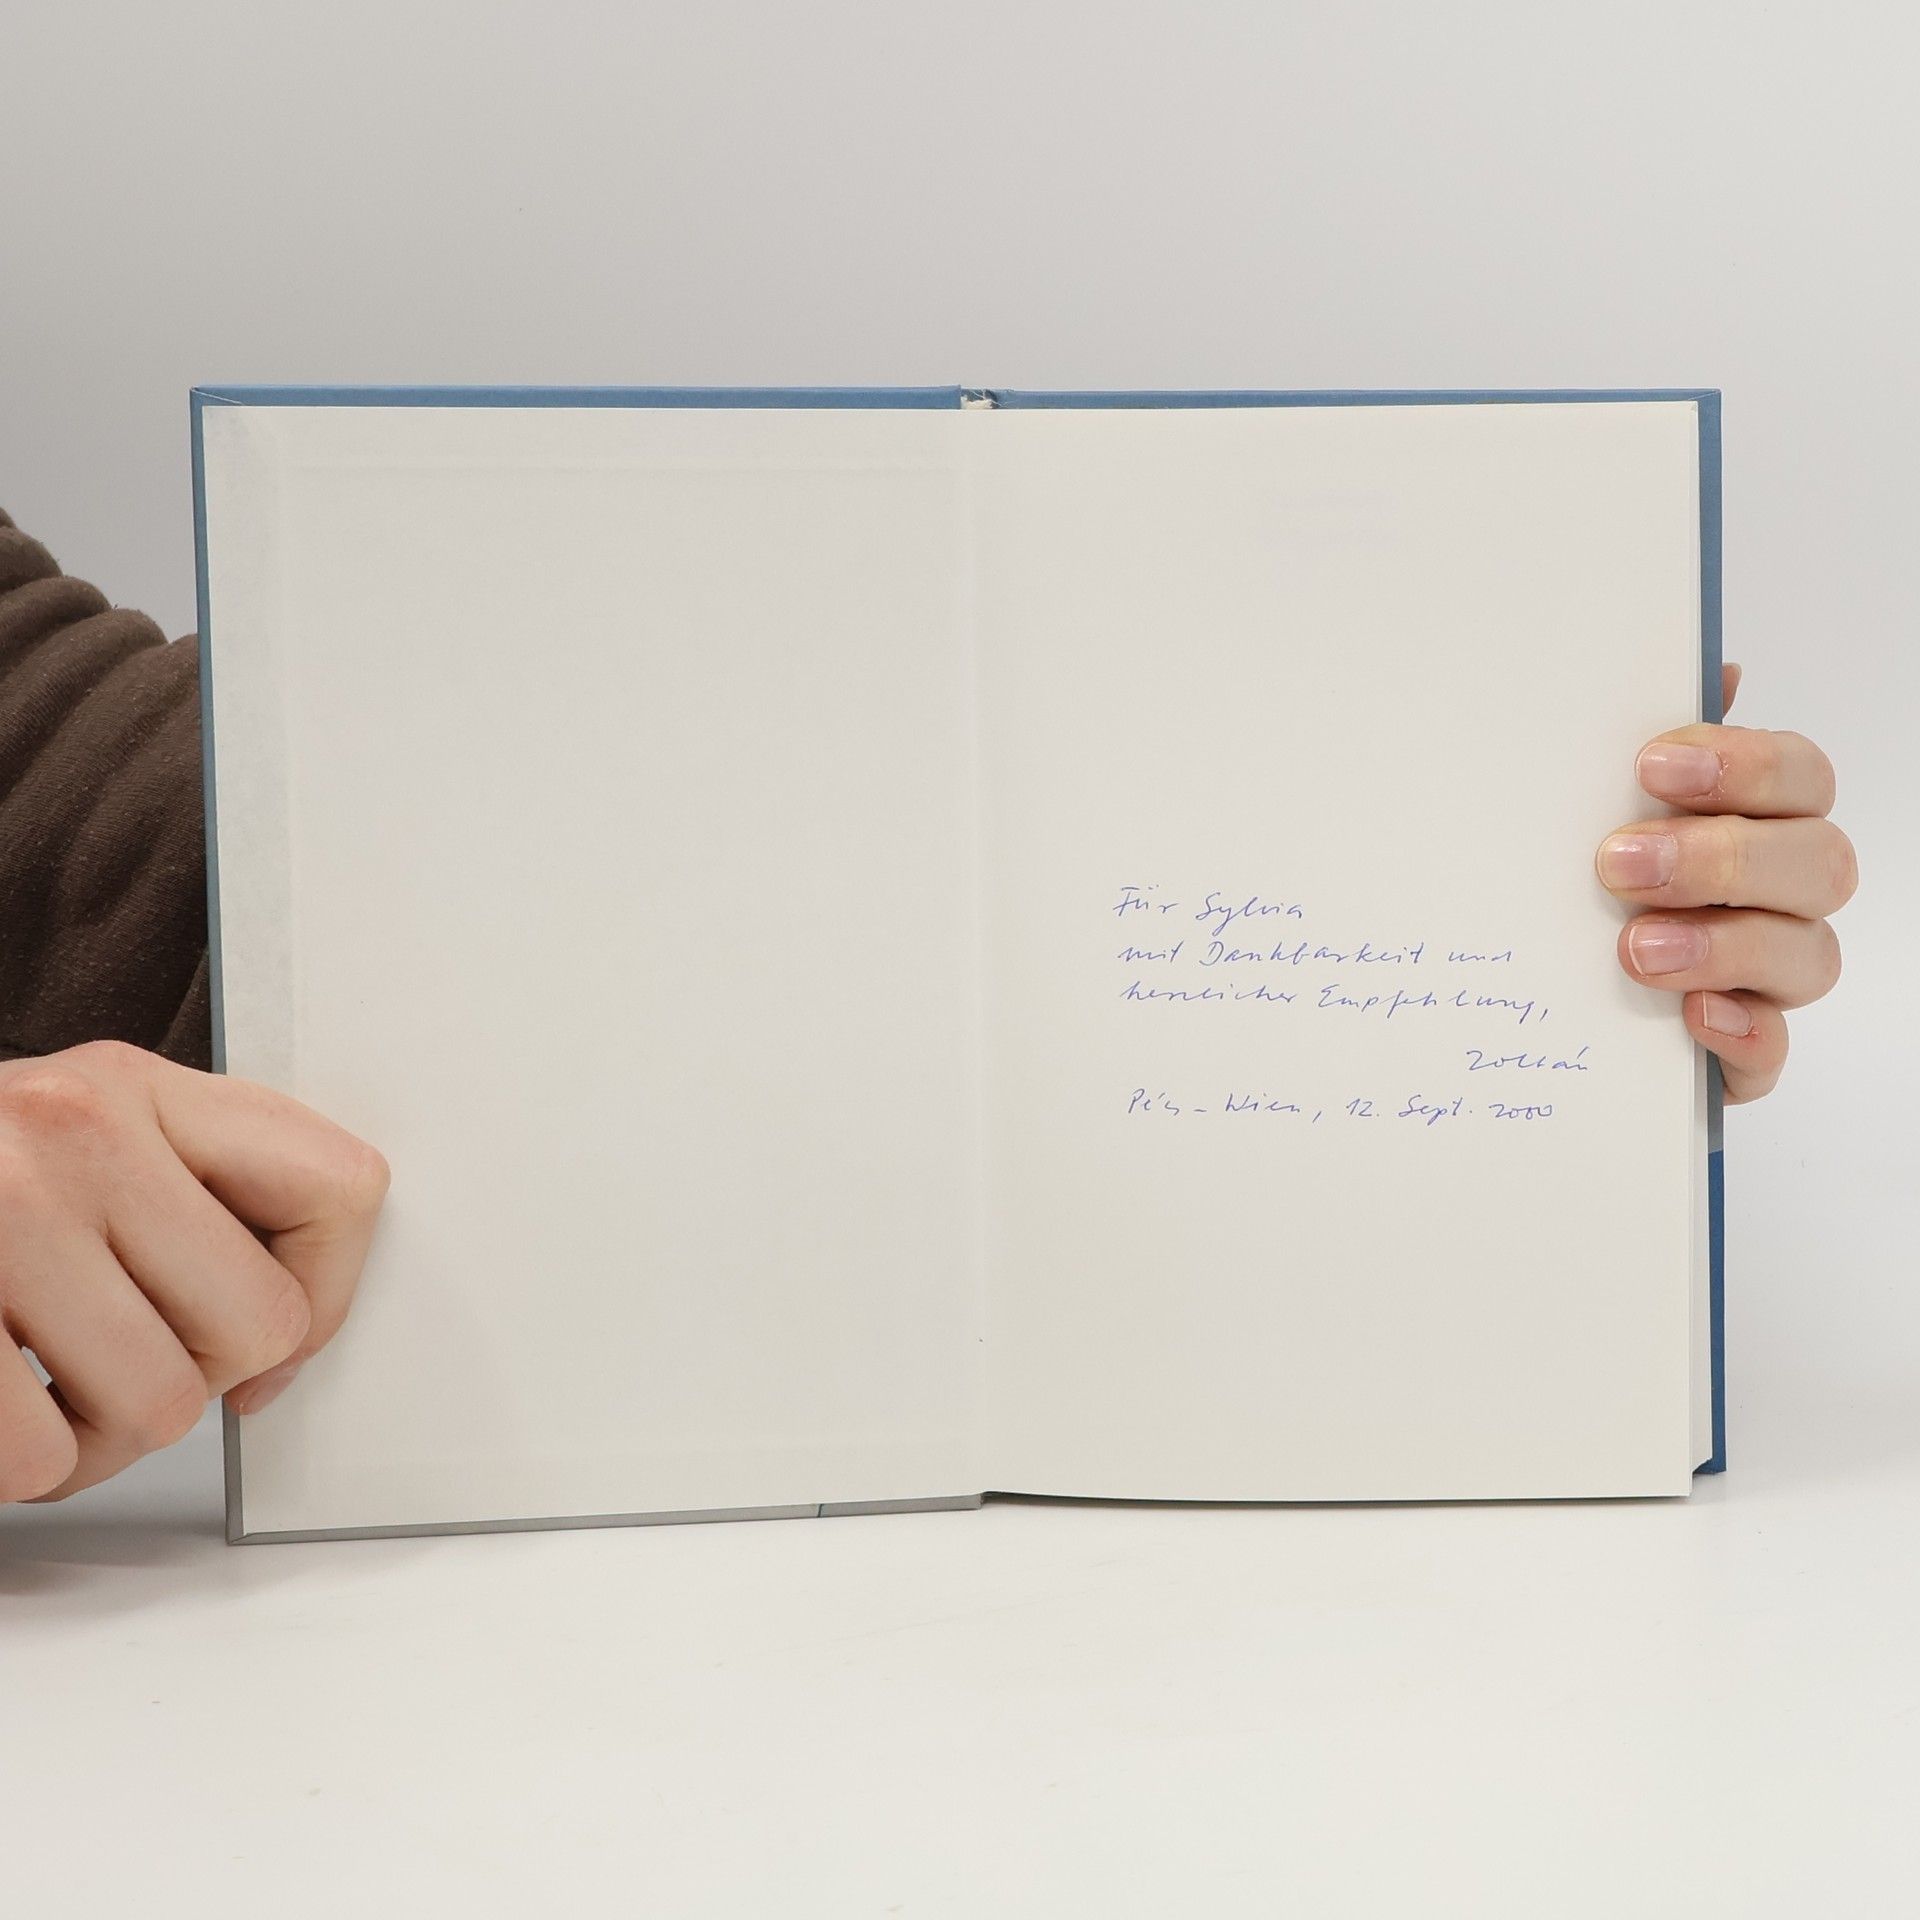 Für Sylvia
mit Dankbarkeit und
herzlicher Empfehlung,
Zoltán
Pécs – Wien, 12. Sept. 2000